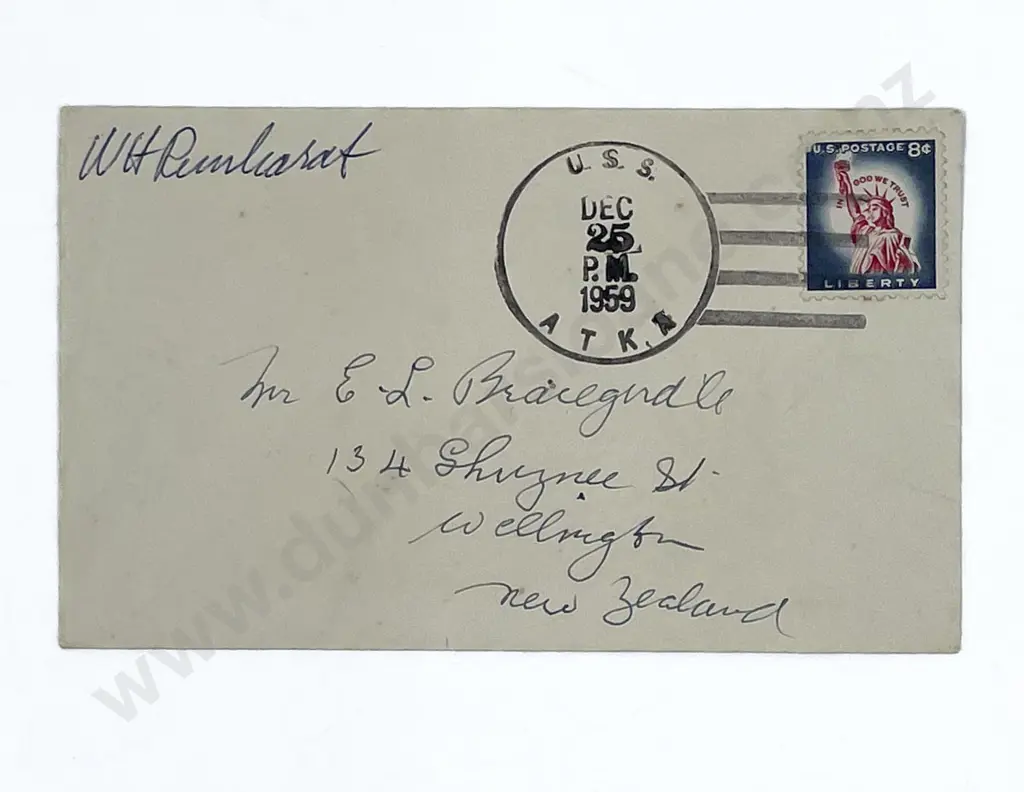 WH Reinhardt
U.S.S.
DEC
25
P.M.
1959
ATKA
U.S. POSTAGE 8¢
IN GOD WE TRUST
LIBERTY
Mr E. L. Bracegirdle
134 Ghuznee St.
Wellington
New Zealand